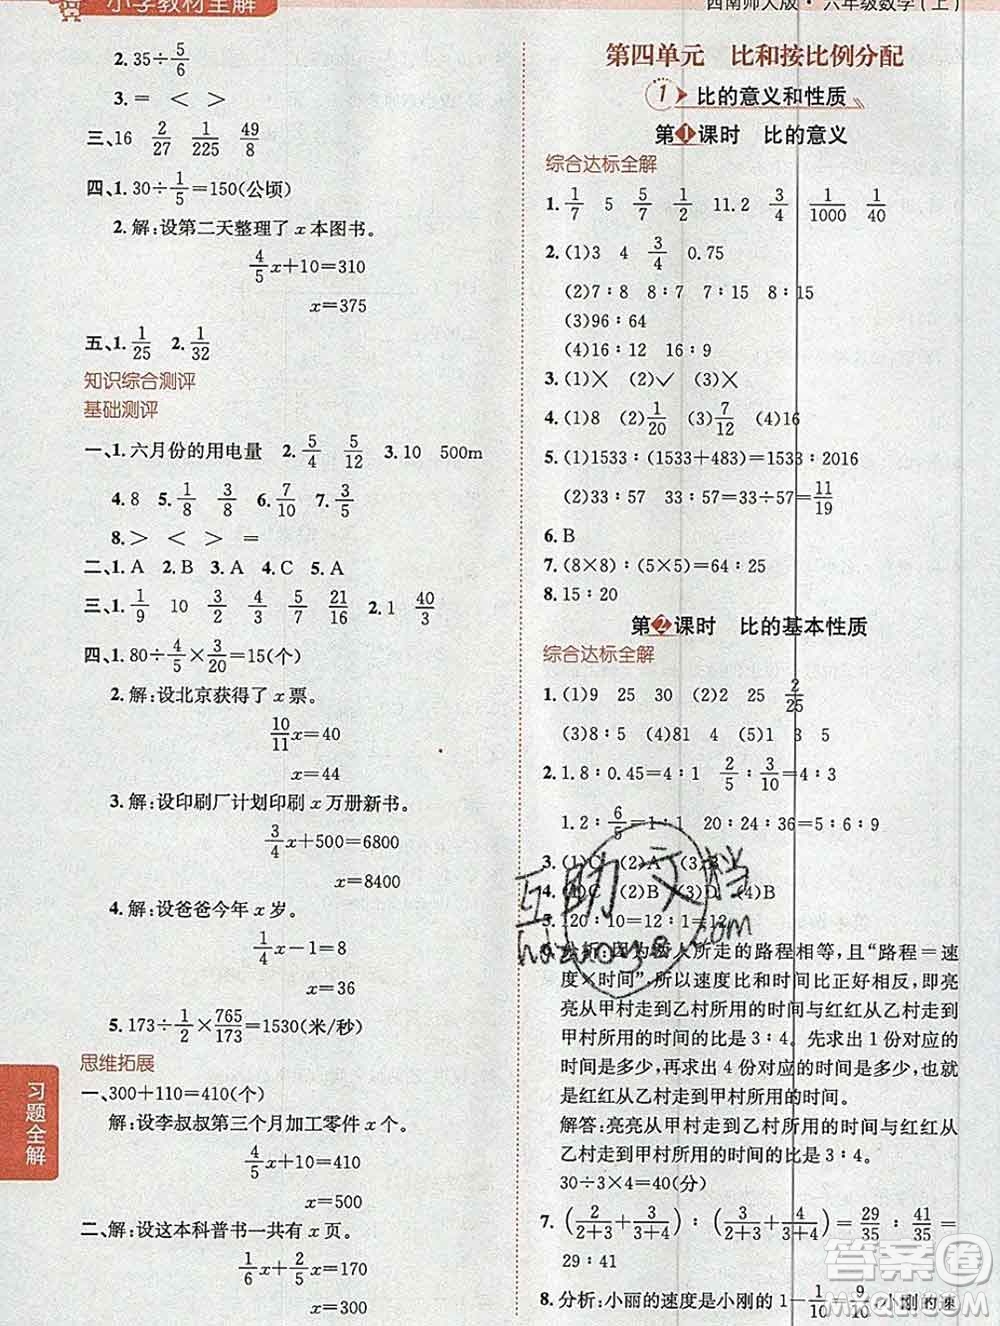 小学教材全解
2. 35÷5/6
3. = < >
三、16 2/27 1/225 49/8
四、1. 30÷1/5=150(公顷)
2. 解:设第二天整理了 x 本图书。
4/5x+10=310
x=375
五、1. 1/25 2. 1/32
知识综合测评
基础测评
一、1. 六月份的用电量 2. 5/4 5/12 3. 10 500m
4. 8 5. 1/8 3/8 6. 7/10 7. 3/5
8. > < > =
二、1. A 2. B 3. A 4. C 5. A
三、1. 1/9 10 3/2 4/3 6/7 21/16 2. 1 40/3
四、1. 80÷4/5×3/20=15(个)
2. 解:设北京获得了 x 票。
10/11x=40
x=44
3. 解:设印刷厂计划印刷 x 万册新书。
3/4x+500=6800
x=8400
4. 解:设爸爸今年 x 岁。
1/4x-1=8
x=36
5. 173÷1/2×765/173=1530(米/秒)
思维拓展
一、300+110=410(个)
解:设李叔叔第三个月加工零件 x 个。
4/5x+10=410
x=500
二、解:设这本科普书一共有 x 页。
1/6x+2/5x=170
x=300
习题全解
西南师大版·六年级数学(上)
第四单元 比和按比例分配
1 比的意义和性质
第1课时 比的意义
综合达标全解
1. 1/7 5 5/7 1/2 11.2 3/4 1/1000 1/40
2. (1)3 4 3/4 0.75
(2)7∶8 8∶7 7∶15 8∶15
(3)96∶64
(4)16∶12 16∶9
3. (1)× (2)✓ (3)×
4. (1)8 (2)1/20 (3)7/12 (4)16
5. (1)1533∶(1533+483)=1533∶2016
(2)33∶57 33∶57=33÷57=11/19
6. B
7. (8×8)∶(5×5)=64∶25
8. 15∶20
第2课时 比的基本性质
综合达标全解
1. (1)9 25 30 (2)4 50 2/25
(3)8∶5 (4)81 4 (5)1 3 5
2. 1.8∶0.45=4∶1 2/5∶3/10=4∶3
1.2∶6/5=1∶1 20∶24=5∶6
3. (1)C (2)A (3)
4. (1)C (2)B (3)D (4)B
5. 120∶10=12∶1=12
6. 分析:因为两人所走的路程相等，且“路程=速
度×时间”，所以速度比和时间比正好相反，即亮
亮从甲村走到乙村所用的时间与红红从乙村走到
甲村所用的时间的比是 3∶4。先求出 1 份对应的
时间是多少，再求出 4 份对应的时间是多少，也就
是红红从乙村走到甲村所用的时间。
解答:亮亮从甲村走到乙村所用的时间与红红从
乙村走到甲村所用的时间的比是 3∶4。
30÷3×4=40(分)
7. (2/2+3+3/3+4)∶(3/2+3+4/3+4)=29/35∶41/35=
29∶41
8. 分析:小丽的速度是小刚的 1-1/10=9/10，小刚的速
互助文档
hdzuoye.com
答案圈
MXQE.COM